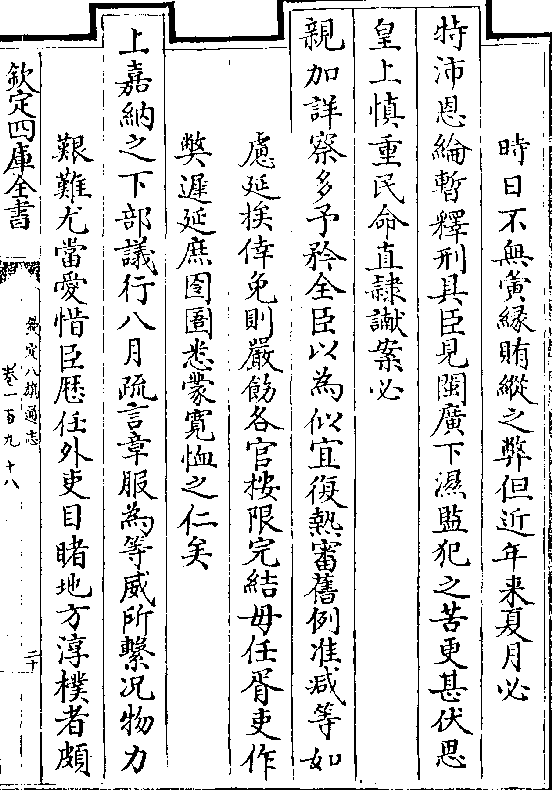 時日不無夤縁賄縱之弊但近年来夏月必
特沛恩綸暫釋刑具臣見閩廣下濕監犯之苦更甚伏思
皇上慎重民命直隸讞案必
親加詳察多予矜全臣以為似宜復熱審舊例准减等如
慮延挨倖免則嚴飭各官按限完結毋任胥吏作
弊遲延庶囹圄悉蒙寛恤之仁矣
上嘉納之下部議行八月疏言章服為等威所繫况物力
艱難尤當愛惜臣歴任外吏目睹地方淳樸者頗
欽定四庫全書
欽定八旗通志
卷一百九十八
二十